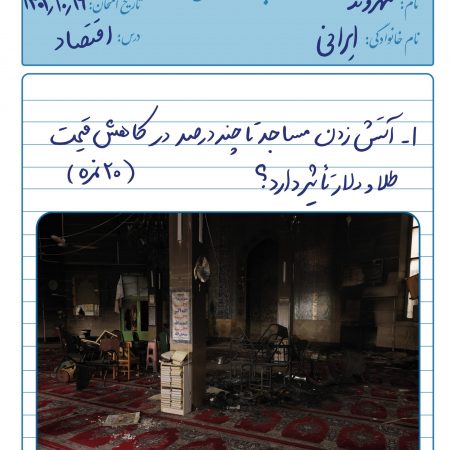 نام: شهروند تاریخ امتحان:
نام خانوادگی: ایرانی درس: اقتصاد
۱ـ آتش زدن مساجد تا چند درصد در کاهش قیمت
طلا و دلار تأثیر دارد؟ (۲۰ نمره)